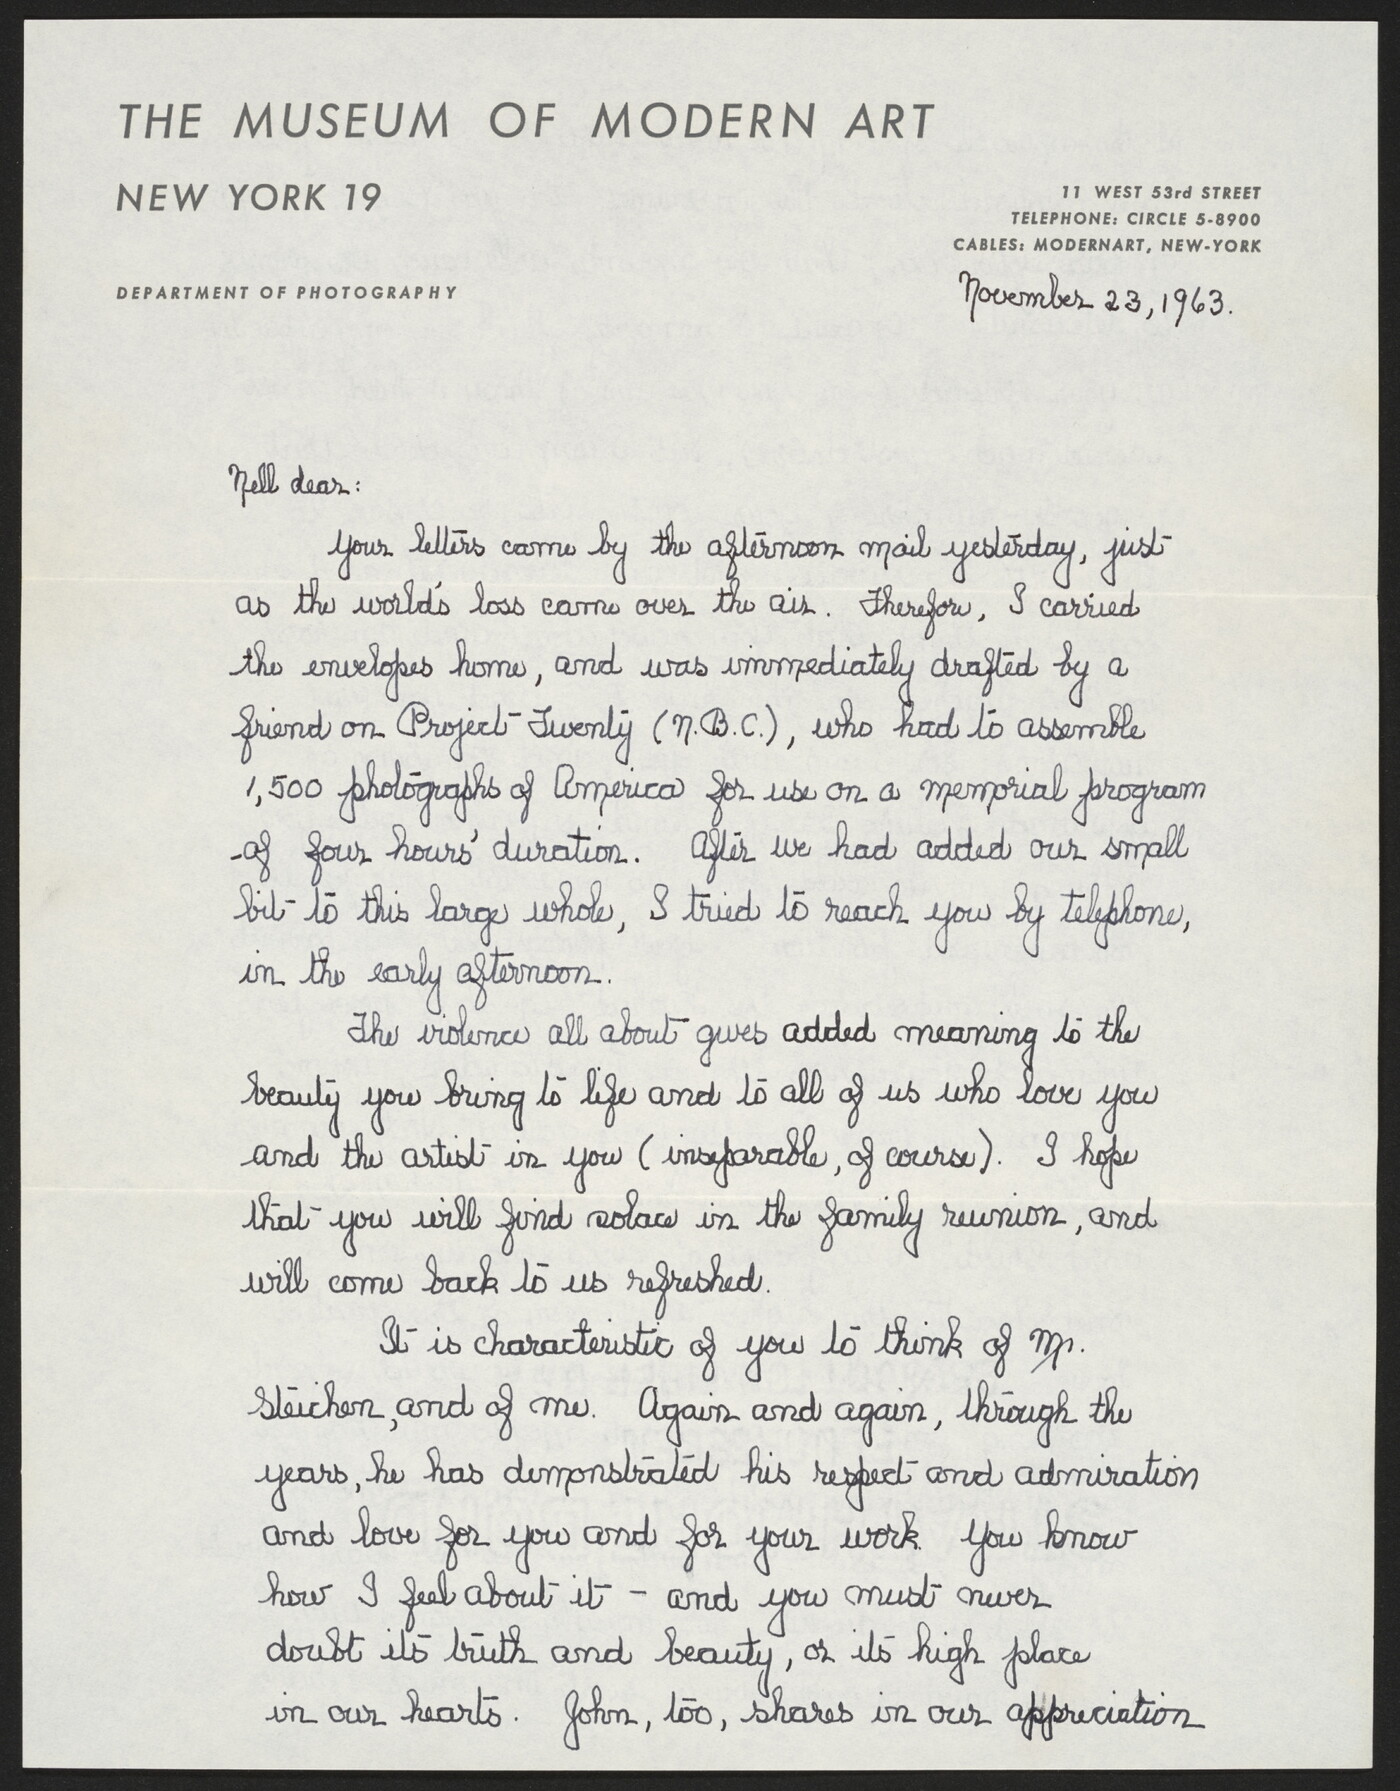 THE MUSEUM OF MODERN ART
NEW YORK 19
11 WEST 53rd STREET
TELEPHONE: CIRCLE 5-8900
CABLES: MODERNART, NEW-YORK
DEPARTMENT OF PHOTOGRAPHY
November 23, 1963.
Nell dear:
Your letters came by the afternoon mail yesterday, just
as the world's loss came over the air. Therefore, I carried
the envelopes home, and was immediately drafted by a
friend on Project Twenty (N.B.C.), who had to assemble
1,500 photographs of America for use on a memorial program
of four hours' duration. After we had added our small
bit to this large whole, I tried to reach you by telephone,
in the early afternoon.
The violence all about gives added meaning to the
beauty you bring to life and to all of us who love you
and the artist in you (inseparable, of course). I hope
that you will find solace in the family reunion, and
will come back to us refreshed.
It is characteristic of you to think of Mr.
Steichen, and of me. Again and again, through the
years, he has demonstrated his respect and admiration
and love for you and for your work. You know
how I feel about it - and you must never
doubt its truth and beauty, or its high place
in our hearts. John, too, shares in our appreciation